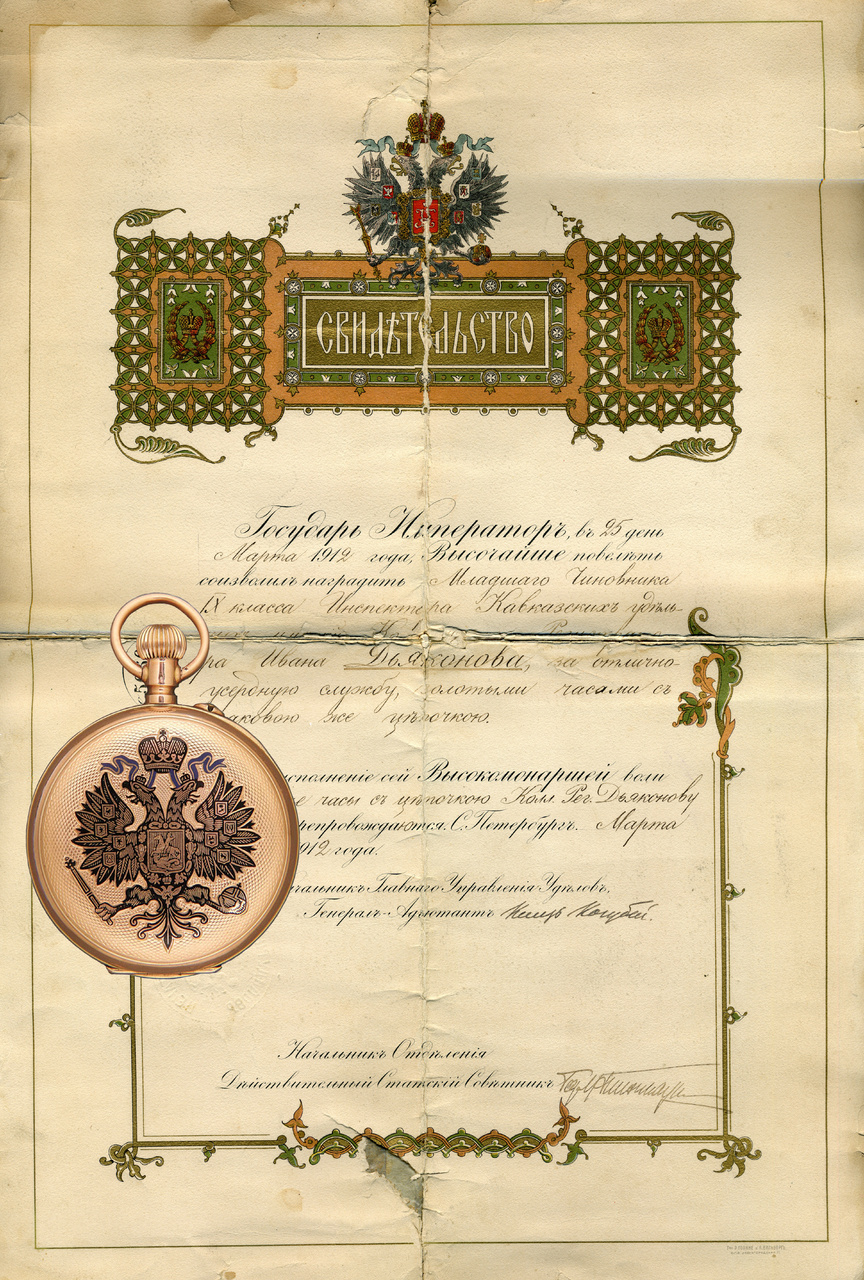 СВИДѢТЕЛЬСТВО
Государь Императоръ, въ 25 день
Марта 1912 года, Высочайше повелѣть
соизволилъ наградить Младшаго Чиновника
IX класса Инспектора Кавказскихъ удѣль-
ра Ивана Дьяконова, за отлично-
усердную службу, золотыми часами съ
таковою же цѣпочкою.
исполненіе сей Высокомонаршей воли
е часы съ цѣпочкою Колл. Рег. Дьяконову
препровождаются. С. Петербургъ. Марта
1912 года.
Начальникъ Главнаго Управленія Удѣловъ,
Генералъ-Адъютантъ Князь Кочубей.
Начальникъ Отдѣленія
Дѣйствительный Статскій Совѣтникъ